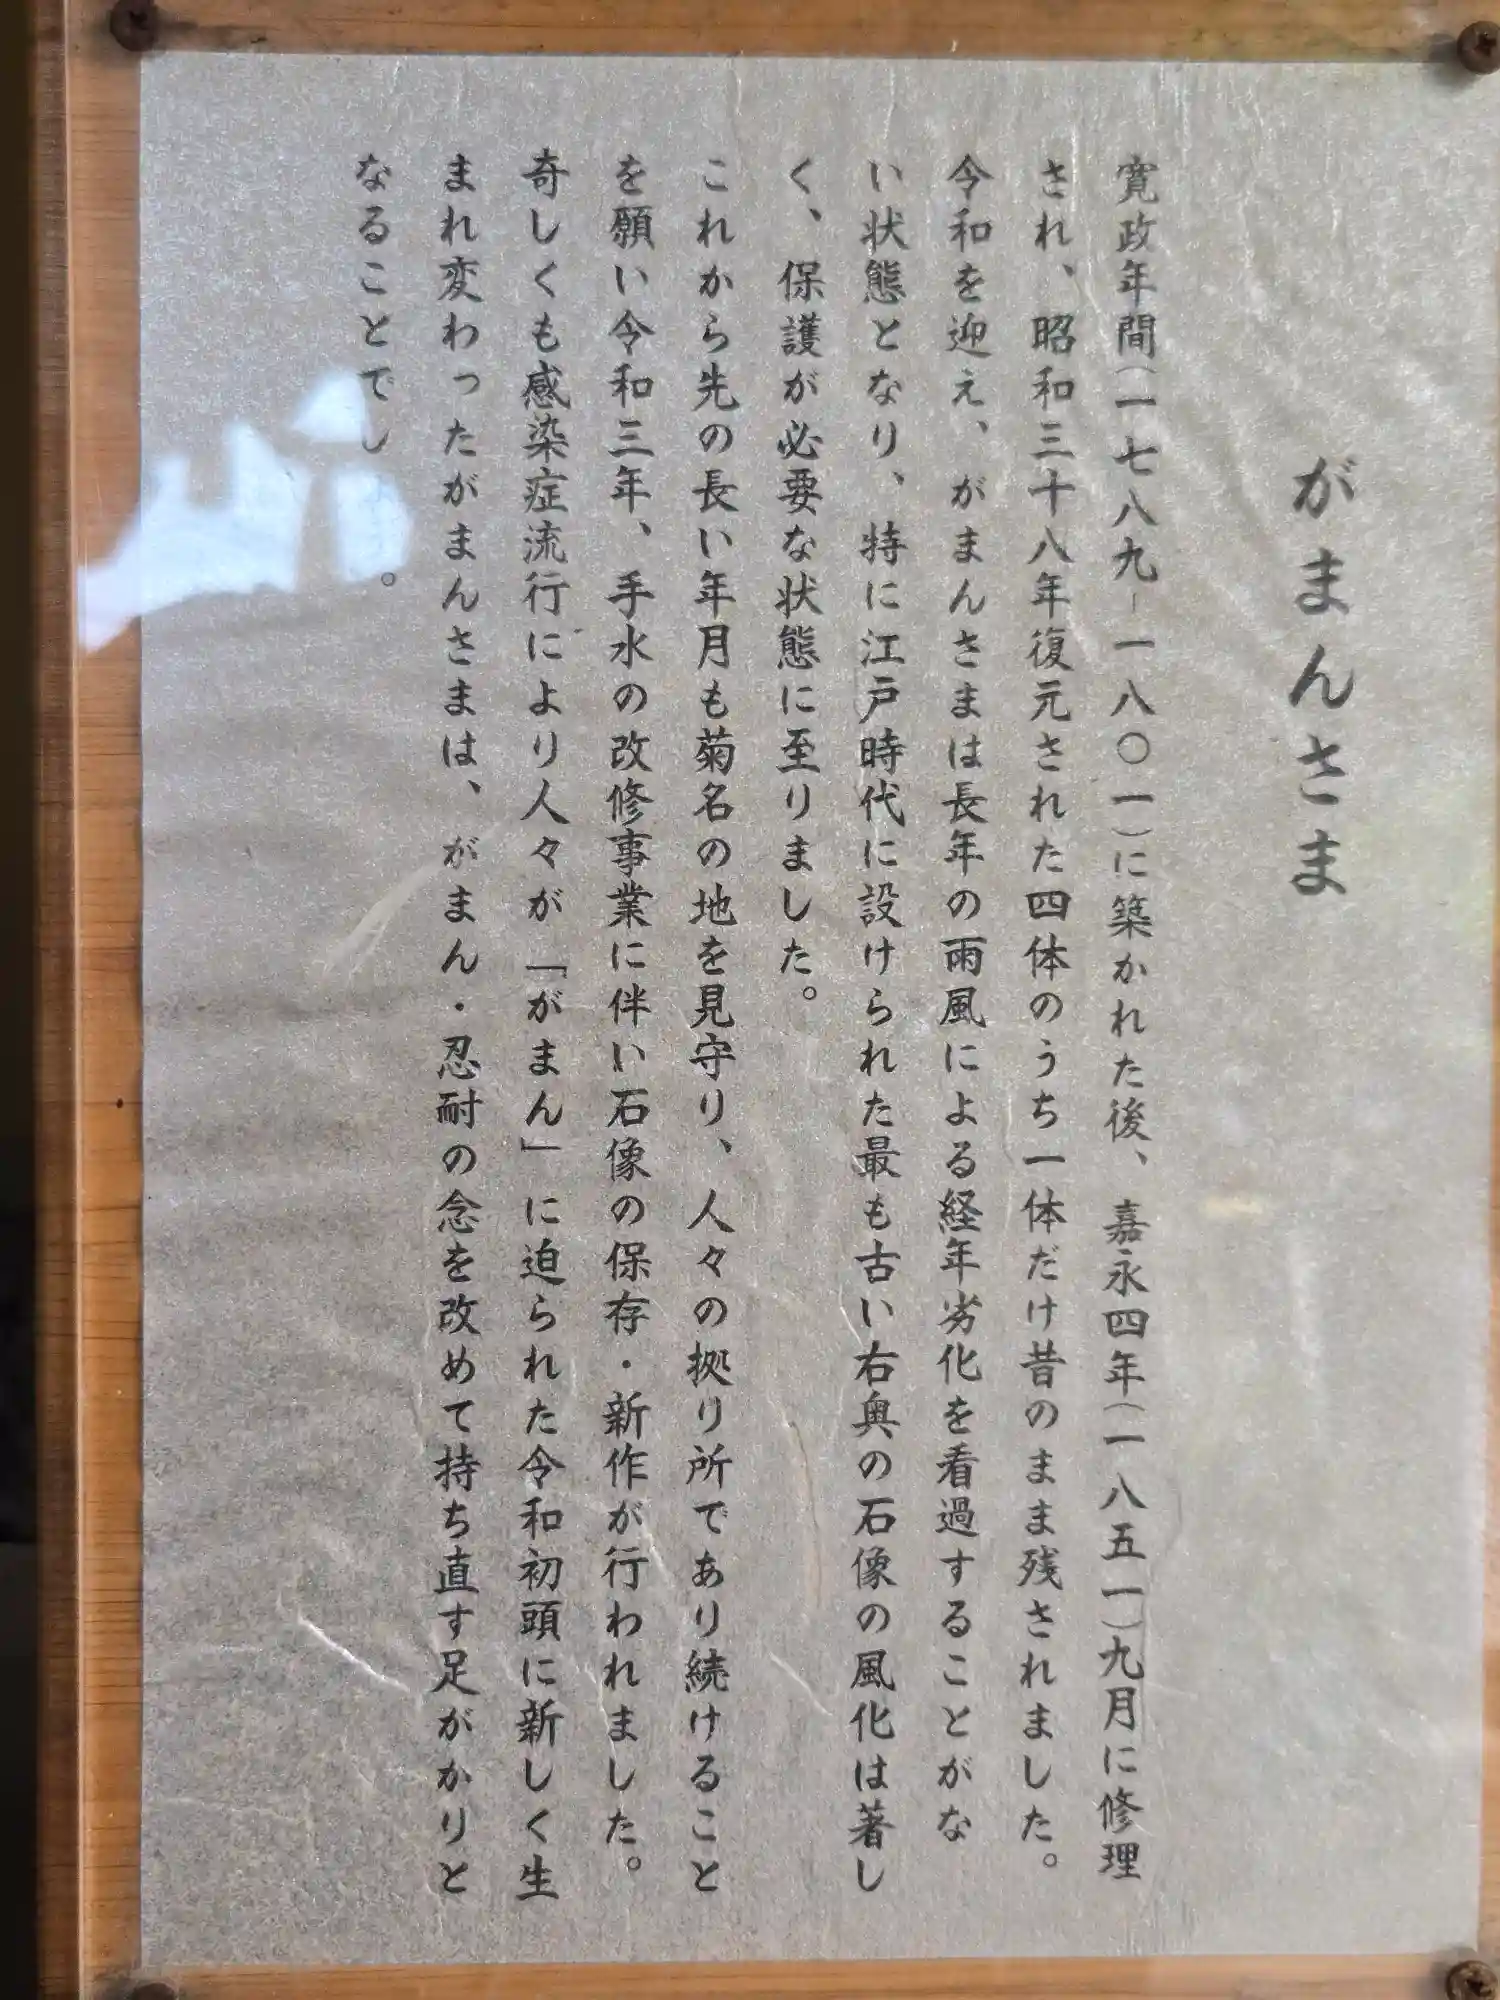 がまんさま
寛政年間(一七八九-一八〇一)に築かれた後、嘉永四年(一八五一)九月に修理
され、昭和三十八年復元された四体のうち一体だけ昔のまま残されました。
令和を迎え、がまんさまは長年の雨風による経年劣化を看過することがな
い状態となり、特に江戸時代に設けられた最も古い右奥の石像の風化は著し
く、保護が必要な状態に至りました。
これから先の長い年月も菊名の地を見守り、人々の拠り所であり続けること
を願い令和三年、手水の改修事業に伴い石像の保存・新作が行われました。
奇しくも感染症流行により人々が「がまん」に迫られた令和初頭に新しく生
まれ変わったがまんさまは、がまん・忍耐の念を改めて持ち直す足がかりと
なることでし。